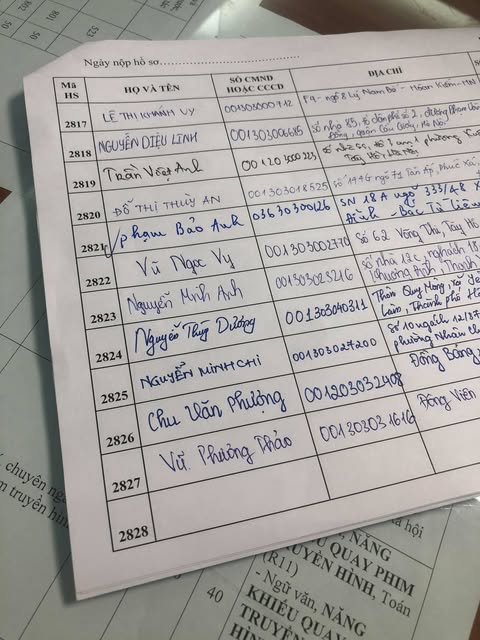 Ngày nộp hồ sơ
Mã HS
HỌ VÀ TÊN
SỐ CMND HOẶC CCCD
ĐỊA CHỈ
2817 LÊ THỊ KHÁNH VY 001303000712 F9 - ngõ 8 Lý Nam Đế - Hoàn Kiếm - HN
2818 NGUYỄN DIỆU LINH 001303006615 Số nhà 85, tổ dân phố số 2, đường Phạm Văn
Đồng, quận Cầu Giấy, Hà Nội
2819 Trần Việt Anh
2820 ĐỖ THỊ THÙY AN 001303018525 Số 144G ngõ 71 Tân Ấp, Phúc Xá,
2821 Phạm Bảo Anh 036303001126 SN 18A ngõ 333/48 X
Đỉnh - Bắc Từ Liêm
2822 Vũ Ngọc Vy 001303002770 Số 62 Võng Thị, Tây Hồ
2823 Nguyễn Minh Anh 001303023216 Số nhà 13C, nghách 18
Thượng Đình, Thanh
2824 Nguyễn Thuỳ Dương 001303040311 Thôn Quy Mông, Xã Yê
Lâm, Thành phố Hà
2825 NGUYỄN MINH CHI 001303027200 Số 10 ngách 12187
phường Nhân Ch
2826 Chu Văn Phượng 001203032408 Đồng Bảng
2827 Vũ Phương Thảo 001303031616 Đồng Viên
2828
, chuyên ng
m truyền hình
à hội
, NĂNG
KHIẾU QUAY PHIM
TRUYỀN HÌNH, Toán
(R11)
- Ngữ văn, NĂNG
KHIẾU QUAY
TRUYỀN
HÌNH
40